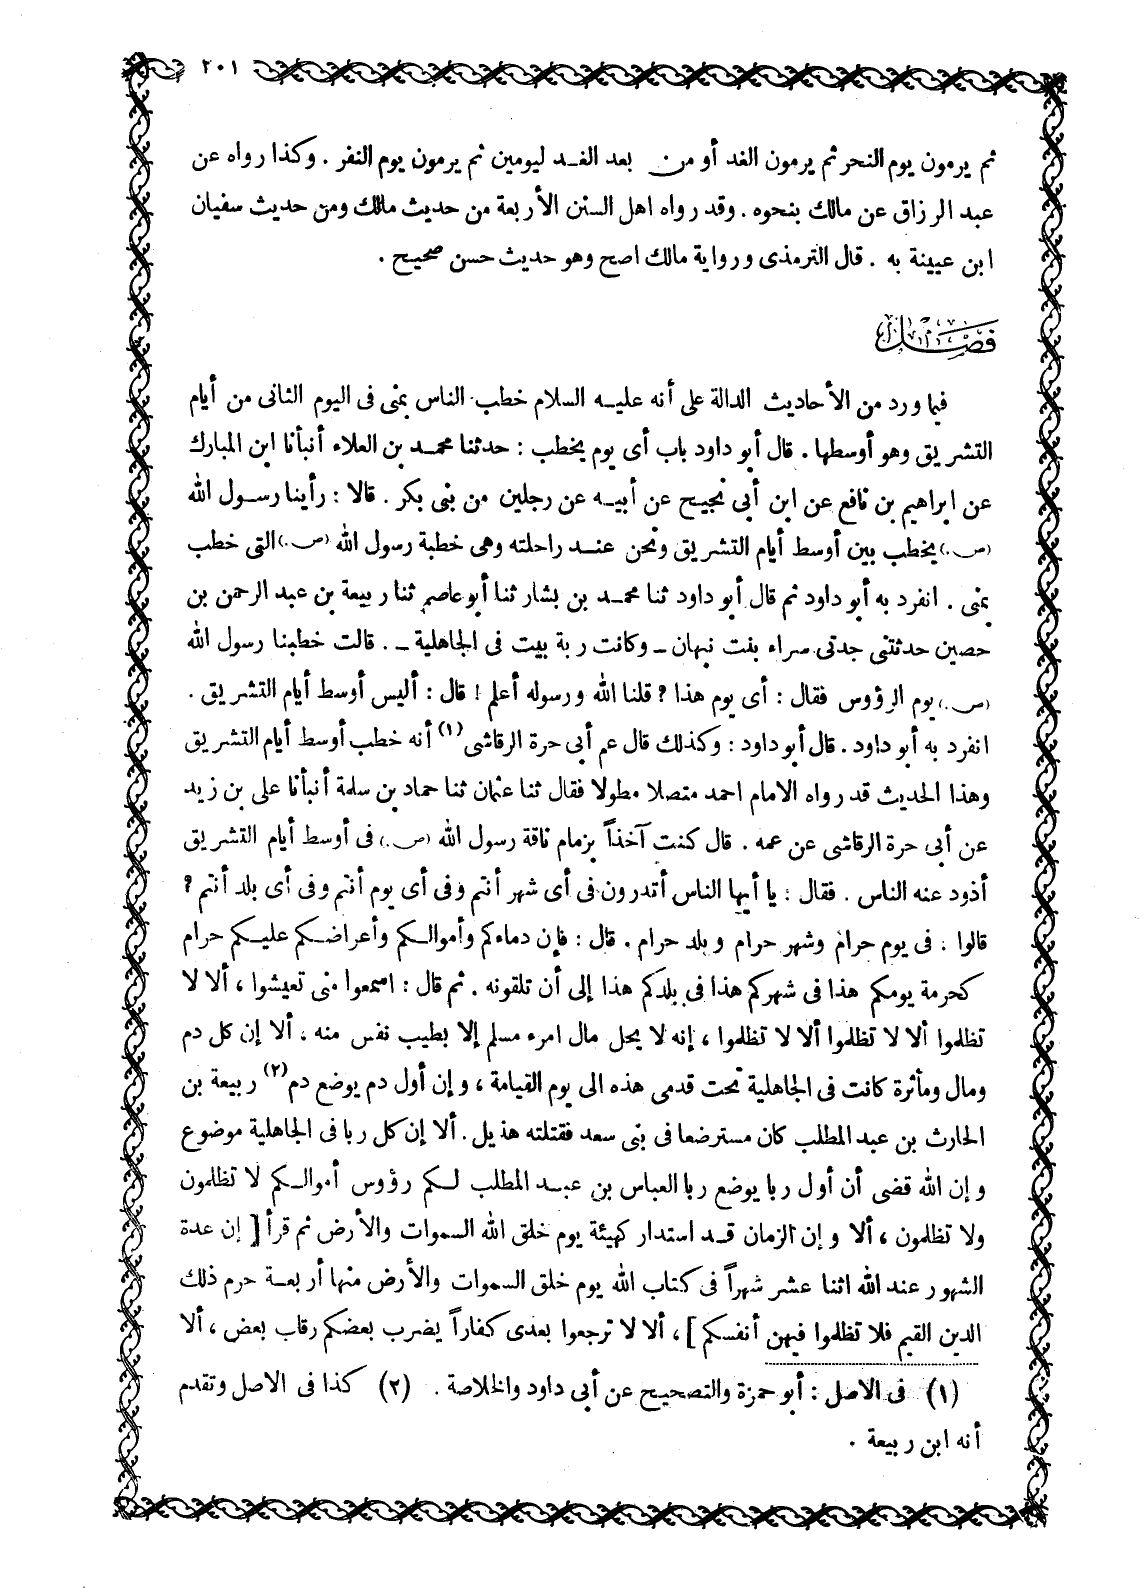 ٢٠١
ثم يرمون يوم النحر ثم يرمون الغد أو من بعد الغد ليومين ثم يرمون يوم النفر . وكذا رواه عن
عبد الرزاق عن مالك بنحوه . وقد رواه اهل السنن الأربعة من حديث مالك ومن حديث سفيان
ابن عيينة به . قال الترمذى ورواية مالك اصح وهو حديث حسن صحيح .
فصل
فيما ورد من الأحاديث الدالة على أنه عليه السلام خطب الناس بمنى فى اليوم الثانى من أيام
التشريق وهو أوسطها . قال أبو داود باب أى يوم يخطب : حدثنا محمد بن العلاء أنبأنا ابن المبارك
عن ابراهيم بن نافع عن ابن أبى نجيح عن أبيه عن رجلين من بنى بكر . قالا : رأينا رسول الله
(ص.) يخطب بين أوسط أيام التشريق ونحن عند راحلته وهى خطبة رسول الله (ص.) التى خطب
بمنى . انفرد به أبو داود ثم قال أبو داود ثنا محمد بن بشار ثنا أبو عاصم ثنا ربيعة بن عبد الرحمن بن
حصين حدثتنى جدتى سراء بنت نبهان ــ وكانت ربة بيت فى الجاهلية ــ . قالت خطبنا رسول الله
(ص.) يوم الرؤوس فقال : أى يوم هذا ؟ قلنا الله ورسوله أعلم ! قال : أليس أوسط أيام التشريق .
انفرد به أبو داود . قال أبو داود : وكذلك قال عم أبى حرة الرقاشى (١) أنه خطب أوسط أيام التشريق
وهذا الحديث قد رواه الامام احمد متصلا مطولا فقال ثنا عثمان ثنا حماد بن سلمة أنبأنا على بن زيد
عن أبى حرة الرقاشى عن عمه . قال كنت آخذاً بزمام ناقة رسول الله (ص.) فى أوسط أيام التشريق
أذود عنه الناس . فقال : يا أيها الناس أتدرون فى أى شهر أنتم وفى أى يوم أنتم وفى أى بلد أنتم ؟
قالوا : فى يوم حرام وشهر حرام وبلد حرام . قال : فإن دماءكم وأموالكم وأعراضكم عليكم حرام
كحرمة يومكم هذا فى شهركم هذا فى بلدكم هذا إلى أن تلقونه . ثم قال : اسمعوا منى تعيشوا ، ألا لا
تظلموا ألا لا تظلموا ألا لا تظلموا ، إنه لا يحل مال امرء مسلم إلا بطيب نفس منه . ألا إن كل دم
ومال ومأثرة كانت فى الجاهلية تحت قدمى هذه الى يوم القيامة ، وإن أول دم يوضع دم (٢) ربيعة بن
الحارث بن عبد المطلب كان مسترضعا فى بنى سعد فقتلته هذيل . ألا إن كل ربا فى الجاهلية موضوع
وإن الله قضى أن أول ربا يوضع ربا العباس بن عبد المطلب لكم رؤوس أموالكم لا تظلمون
ولا تظلمون ، ألا وإن الزمان قد استدار كهيئة يوم خلق الله السموات والأرض ثم قرأ [ إن عدة
الشهور عند الله اثنا عشر شهراً فى كتاب الله يوم خلق السموات والأرض منها أربعة حرم ذلك
الدين القيم فلا تظلموا فيهن أنفسكم ] ، ألا لا ترجعوا بعدى كفاراً يضرب بعضكم رقاب بعض ، ألا
(١) فى الاصل : أبو حمزة والتصحيح عن أبى داود والخلاصة . (٢) كذا فى الاصل وتقدم
أنه ابن ربيعة .